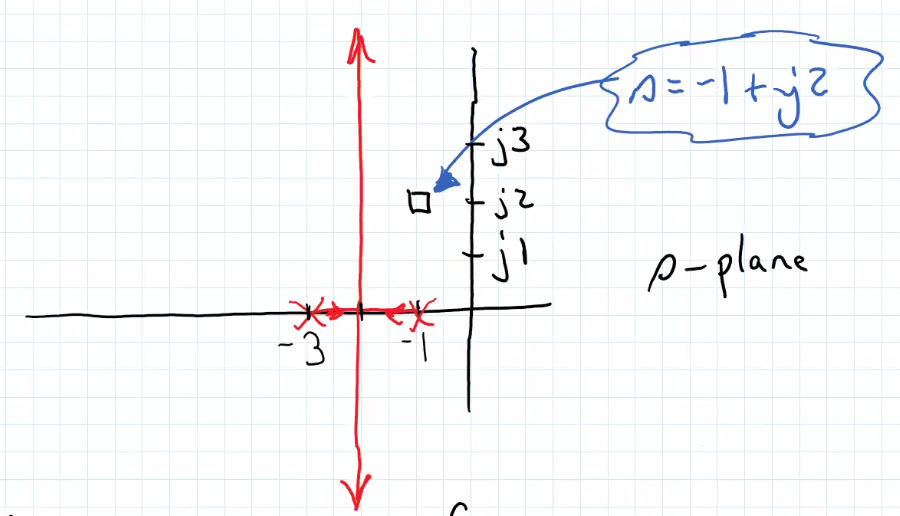 s = -1 + j2
j3
j2
j1
s-plane
-3
-1